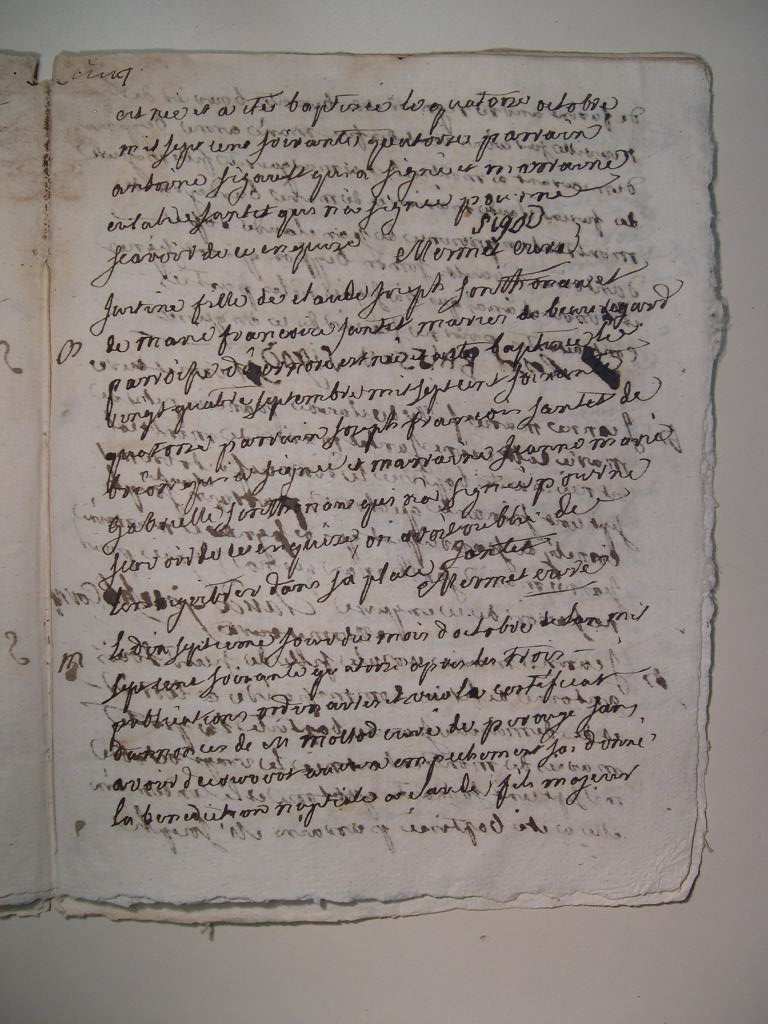 cinq
est née et a etée baptisée le quatorse octobre
mil sept cent soixante quatorse parrain
antoine Sigault qui a signé et marraine
eulalie Jantet qui na signée pour ne
Sigod
scavoir de ce enquize Mermet curé
Justine fille de claude Joseph Jonthonax et
de marie francoise Jantet mariés de beauregard
B
parroisse née et a etée baptisée le
vingt quatre septembre mil sept cent soixante
quatorse parrain Joseph francois Jantet de
qui a signée et marraine Jeanne marie
gabrielle Jonthonax qui na signée pour ne
scavoir de ce enquize, on avoit oublié de
Jantet
lenregistrer dans sa place Mermet curé
le dix septieme jour du mois doctobre de lan mil
M
sept cent soixante quatorse apres les trois
publications ordinaires et vu le certificat
dannonces de M mottod curé de sans
avoir decouvert aucun empechement jai donné
la benediction nuptiale a claude fils majeur